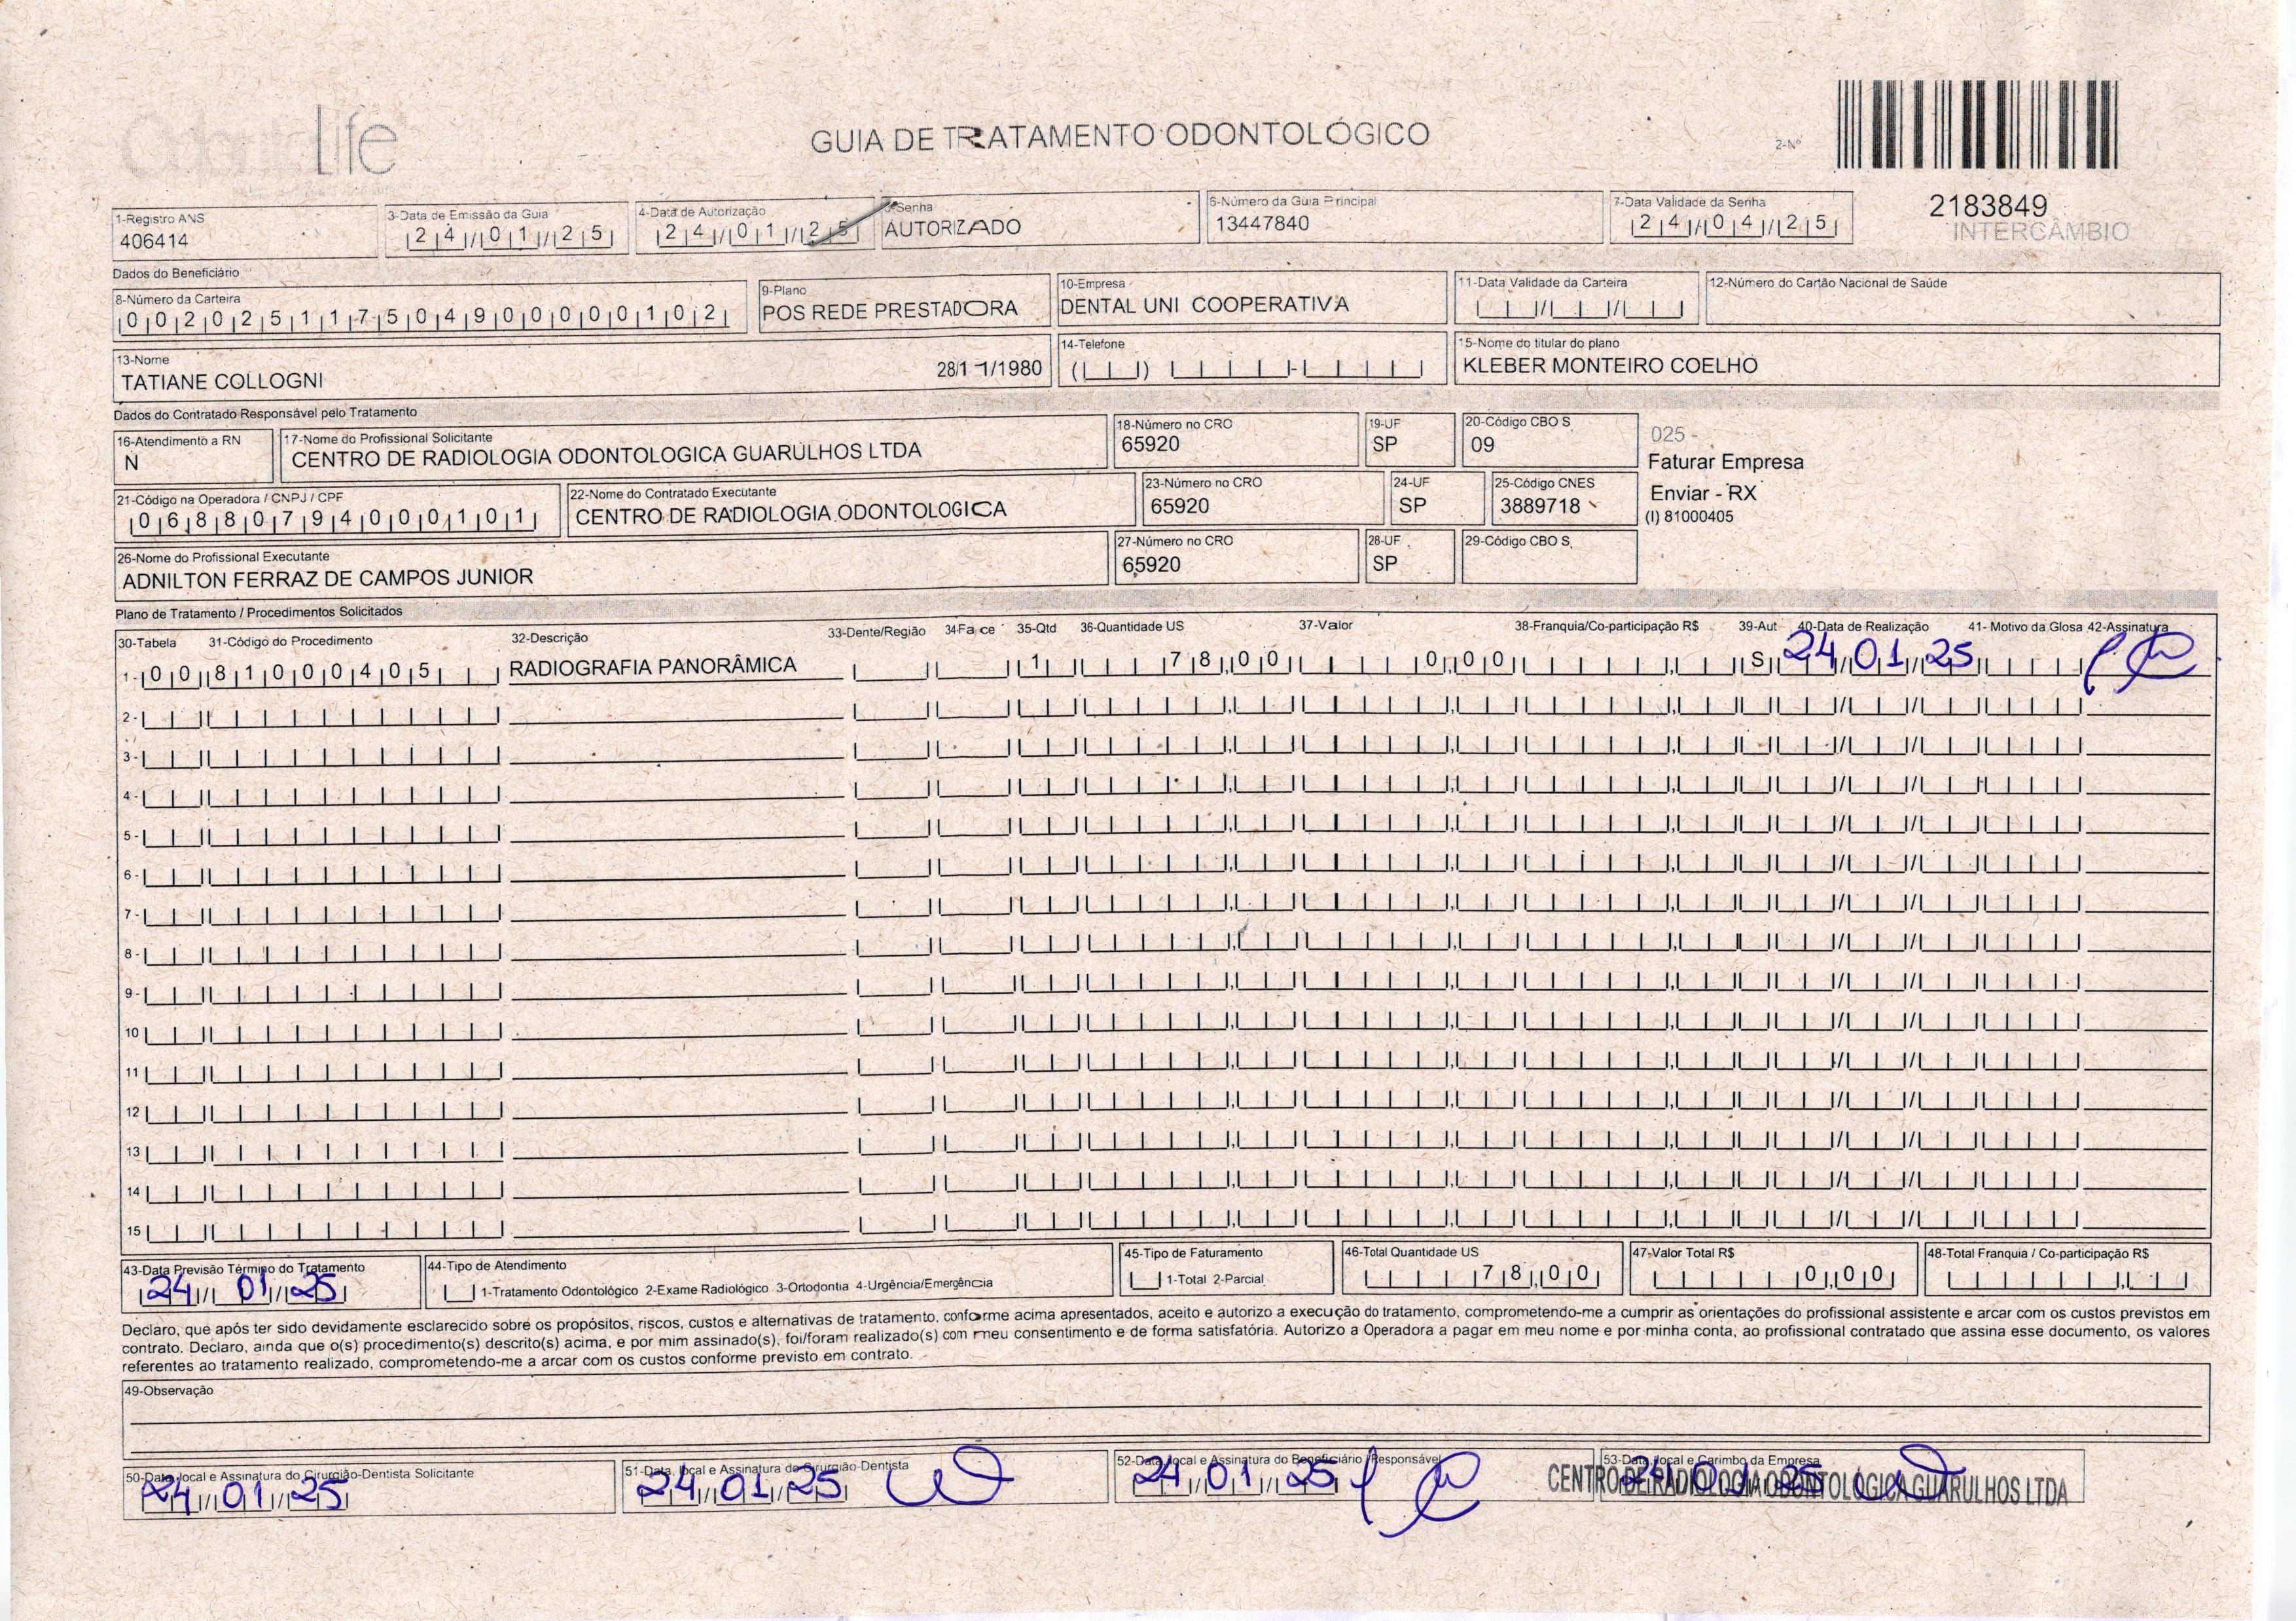 OdontoLife
GUIA DE TRATAMENTO ODONTOLÓGICO
2-Nº
2183849
INTERCÂMBIO
1-Registro ANS
406414
3-Data de Emissão da Guia
24/01/25
4-Data de Autorização
24/01/25
5-Senha
AUTORIZADO
6-Número da Guia Principal
13447840
7-Data Validade da Senha
24/04/25
Dados do Beneficiário
8-Número da Carteira
002025117504900000102
9-Plano
POS REDE PRESTADORA
10-Empresa
DENTAL UNI COOPERATIVA
11-Data Validade da Carteira
12-Número do Cartão Nacional de Saúde
13-Nome
TATIANE COLLOGNI 28/11/1980
14-Telefone
15-Nome do titular do plano
KLEBER MONTEIRO COELHO
Dados do Contratado Responsável pelo Tratamento
16-Atendimento a RN
N
17-Nome do Profissional Solicitante
CENTRO DE RADIOLOGIA ODONTOLOGICA GUARULHOS LTDA
18-Número no CRO
65920
19-UF
SP
20-Código CBO S
09
025 -
Faturar Empresa
Enviar - RX
(I) 81000405
21-Código na Operadora / CNPJ / CPF
06880794000101
22-Nome do Contratado Executante
CENTRO DE RADIOLOGIA ODONTOLOGICA
23-Número no CRO
65920
24-UF
SP
25-Código CNES
3889718
26-Nome do Profissional Executante
ADNILTON FERRAZ DE CAMPOS JUNIOR
27-Número no CRO
65920
28-UF
SP
29-Código CBO S
Plano de Tratamento / Procedimentos Solicitados
30-Tabela 31-Código do Procedimento 32-Descrição 33-Dente/Região 34-Face 35-Qtd 36-Quantidade US 37-Valor 38-Franquia/Co-participação R$ 39-Aut 40-Data de Realização 41- Motivo da Glosa 42-Assinatura
1- 00 81000405 RADIOGRAFIA PANORÂMICA 1 78,00 0,00 S 24/01/25
2-
3-
4-
5-
6-
7-
8-
9-
10
11
12
13
14
15
43-Data Previsão Término do Tratamento
24/01/25
44-Tipo de Atendimento
1-Tratamento Odontológico 2-Exame Radiológico 3-Ortodontia 4-Urgência/Emergência
45-Tipo de Faturamento
1-Total 2-Parcial
46-Total Quantidade US
78,00
47-Valor Total R$
0,00
48-Total Franquia / Co-participação R$
Declaro, que após ter sido devidamente esclarecido sobre os propósitos, riscos, custos e alternativas de tratamento, conforme acima apresentados, aceito e autorizo a execução do tratamento, comprometendo-me a cumprir as orientações do profissional assistente e arcar com os custos previstos em
contrato. Declaro, ainda que o(s) procedimento(s) descrito(s) acima, e por mim assinado(s), foi/foram realizado(s) com meu consentimento e de forma satisfatória. Autorizo a Operadora a pagar em meu nome e por minha conta, ao profissional contratado que assina esse documento, os valores
referentes ao tratamento realizado, comprometendo-me a arcar com os custos conforme previsto em contrato.
49-Observação
50-Data, local e Assinatura do Cirurgião-Dentista Solicitante
24/01/25
51-Data, local e Assinatura do Cirurgião-Dentista
24/01/25
52-Data, local e Assinatura do Beneficiário / Responsável
24/01/25
53-Data, local e Carimbo da Empresa
24/01/25
CENTRO DE RADIOLOGIA ODONTOLÓGICA GUARULHOS LTDA